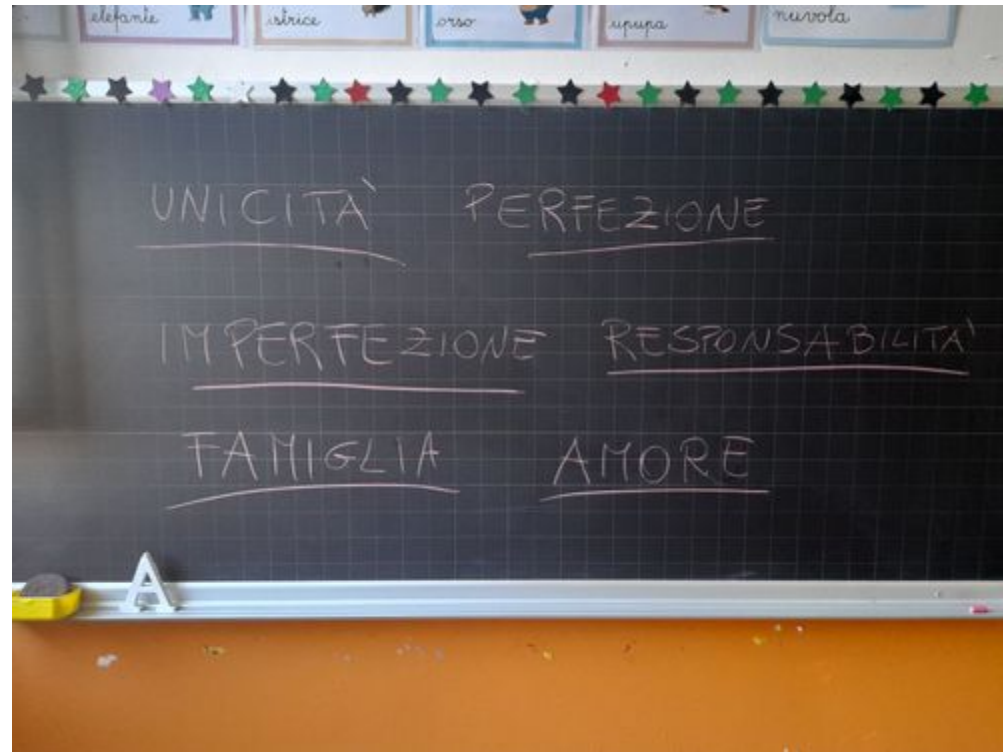 elefante istrice orso upupa nuvola
UNICITÀ PERFEZIONE
IMPERFEZIONE RESPONSABILITÀ
FAMIGLIA AMORE
A